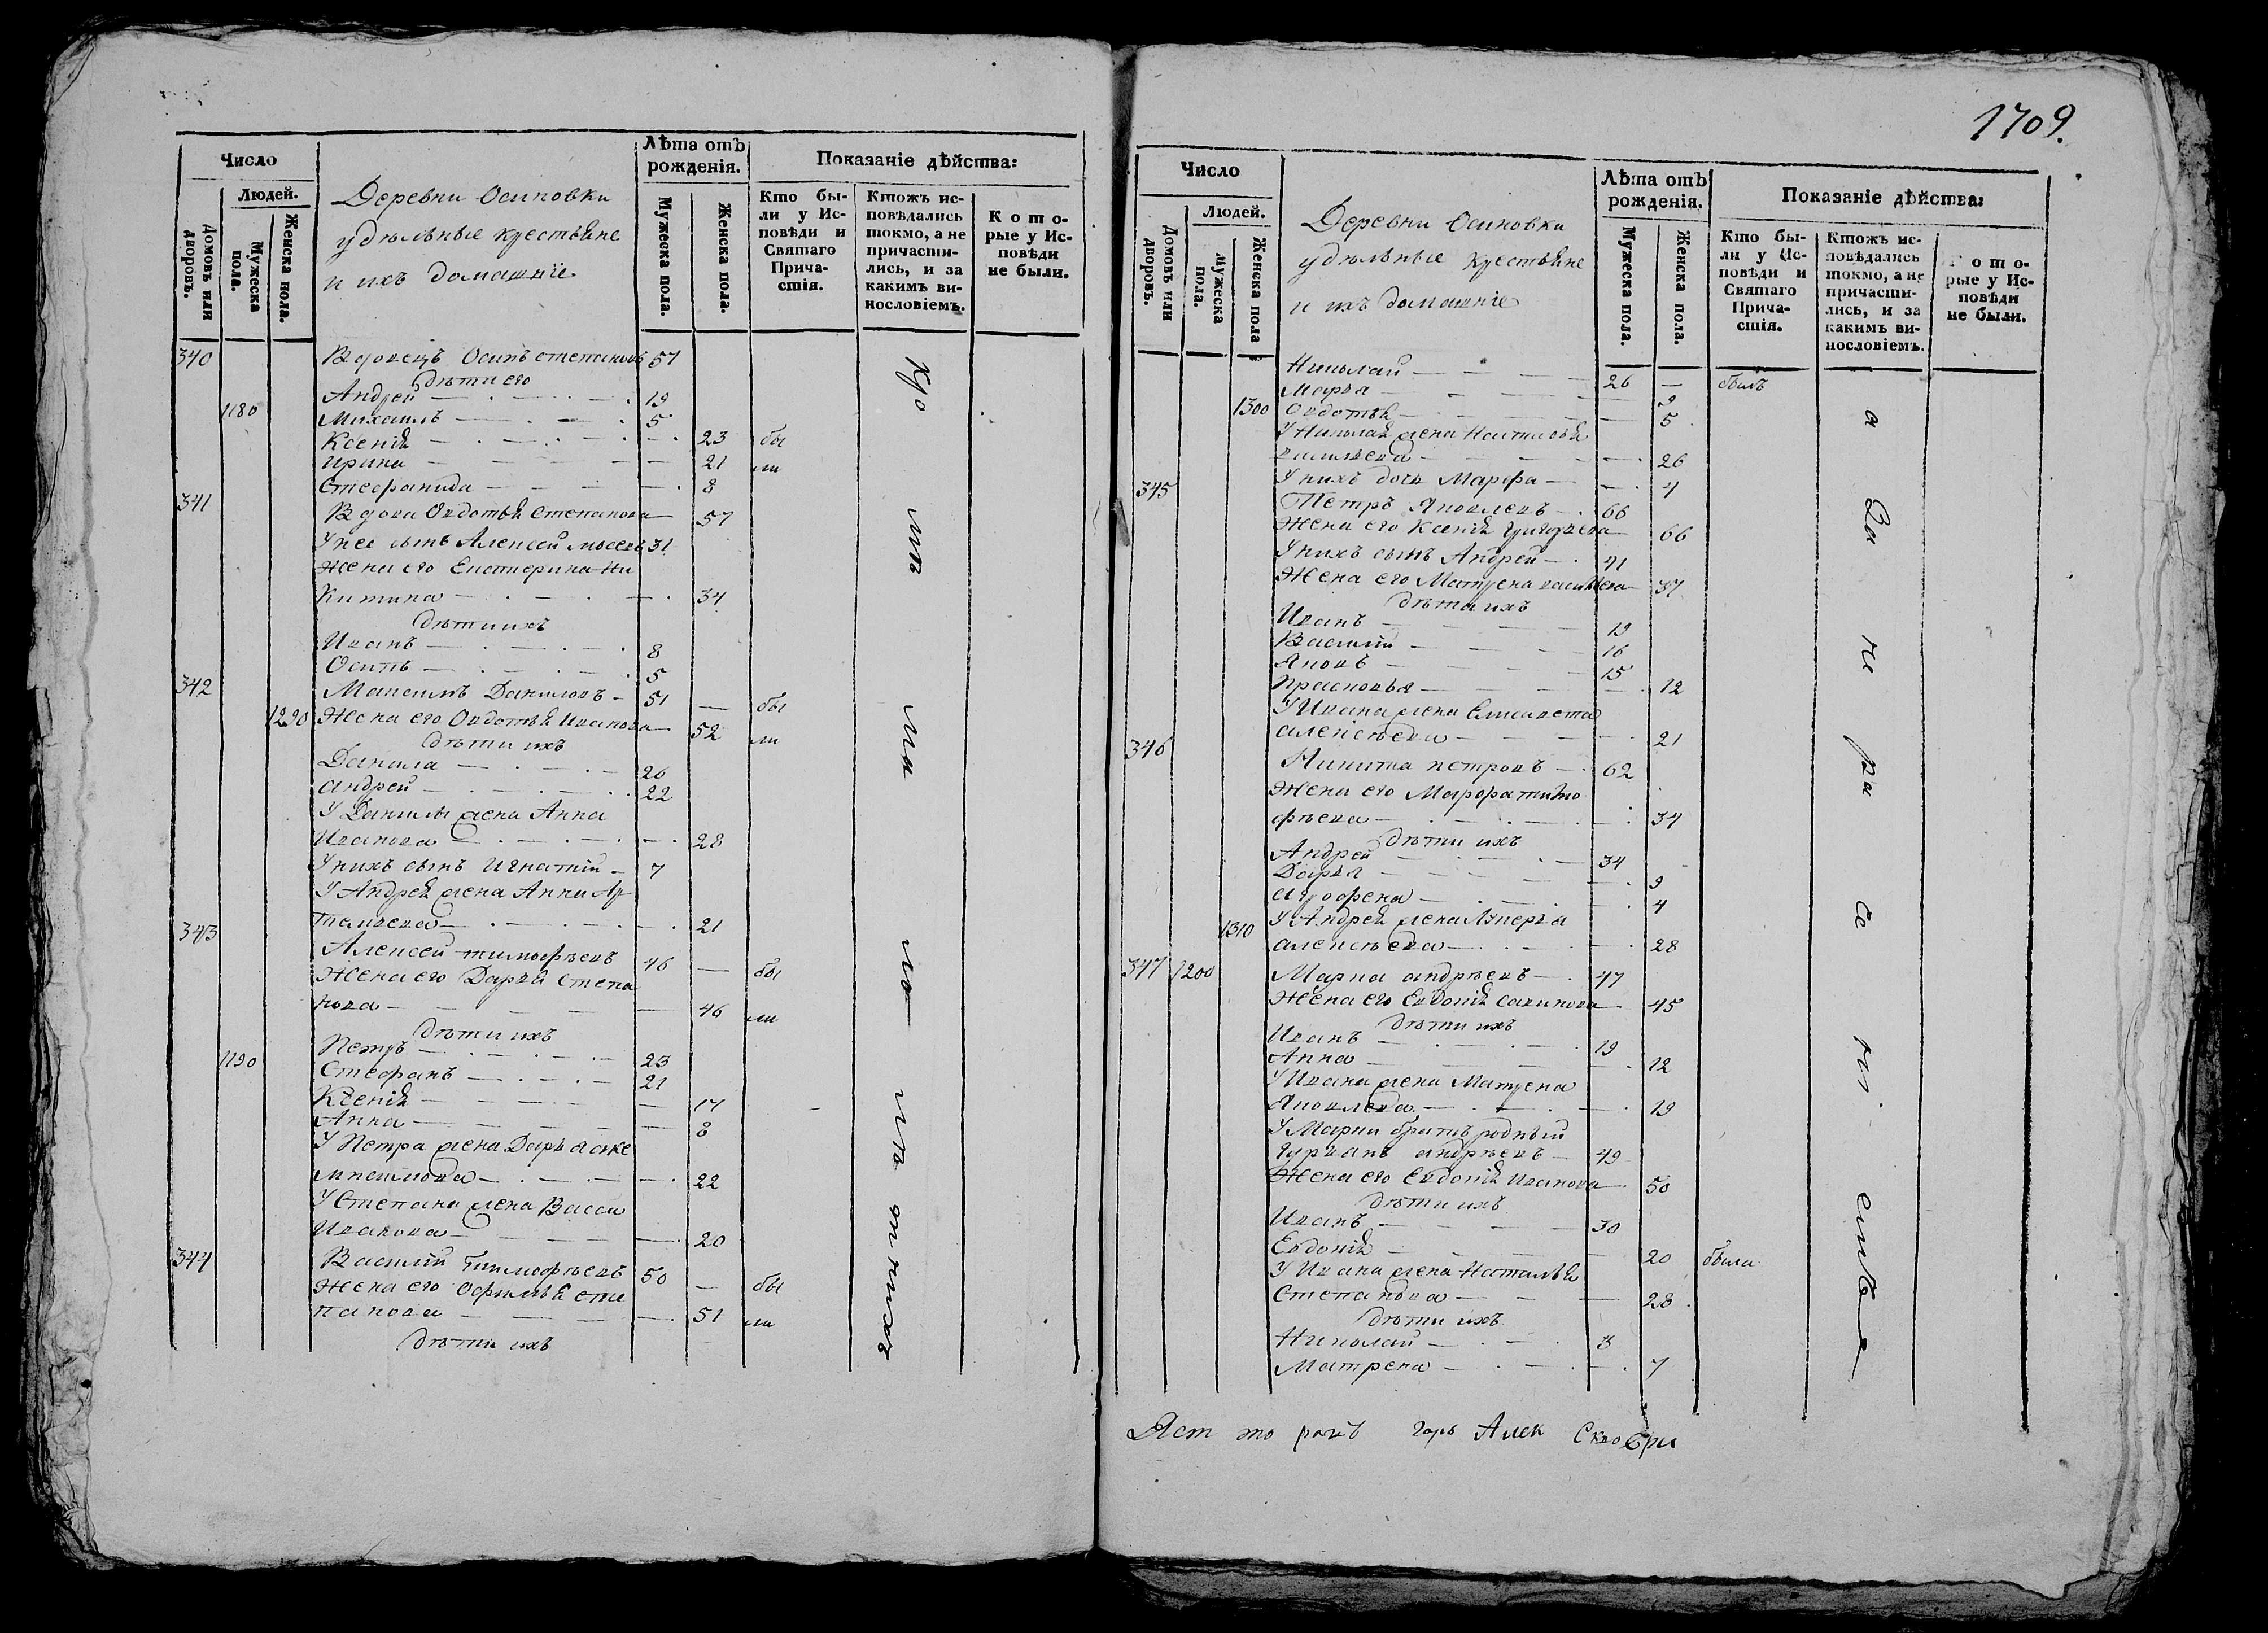 Число
Людей.
Домовъ или дворовъ.
Мужеска пола.
Женска пола.
Деревни Осиповки
удѣльные крестьяне
и ихъ домашніе
Лѣта отъ рожденія.
Мужеска пола.
Женска пола.
Показаніе дѣйства:
Кто бы-
ли у Ис-
повѣди и
Святаго
Прича-
стія.
Ктожъ ис-
повѣдались
токмо, а не
причасти-
лись, и за
какимъ ви-
нословіемъ.
Кото-
рые у Ис-
повѣди
не были.
340 Вдовецъ Осипъ Степановъ 57
дѣти его
Андрей 19
1180 Михаилъ 5
Ксенія 23 бы
Ирина 21 ли
Стефанида 8
341 Вдова Овдотья Степанова 57
У нее сынъ Алексей 31
Жена его Екатерина Ни
китина 34
дѣти ихъ
Иванъ 8
Осипъ 5
342 Максимъ Даниловъ 51 бы
1290 Жена его Овдотья Иванова 52 ли
дѣти ихъ
Данила 26
Андрей 22
У Данилы жена Анна
Иванова 28
У нихъ сынъ Игнатій 7
У Андрея жена Анна Ар
тамьева 21
343 Алексей Тимофѣевъ 46 бы
Жена его Дарья Степа
нова 46 ли
дѣти ихъ
Петръ 23
1190 Стефанъ 21
Ксенія 17
Анна 8
У Петра жена Дарья
22
У Степана жена Васса
Иванова 20
344 Василій Тимофѣевъ 50 бы
Жена его Офимья Сте
панова 51 ли
дѣти ихъ
Кро мѣ ма ло лѣ тнихъ
1709.
Число
Людей.
Домовъ или дворовъ.
Мужеска пола.
Женска пола
Деревни Осиповки
удѣльные крестьяне
и ихъ домашніе
Лѣта отъ рожденія.
Мужеска пола.
Женска пола.
Показаніе дѣйства:
Кто бы-
ли у Ис-
повѣди и
Святаго
Прича-
стія.
Ктожъ ис-
повѣдались
токмо, а не
причасти-
лись, и за
какимъ ви-
нословіемъ.
Кото-
рые у Ис-
повѣди
не были.
Николай 26 былъ
Марья 9
1300 Овдотья 5
У Николая жена Наталья
26
У нихъ дочь Марфа 4
345 Петръ Яковлевъ 66
Жена его Ксенія Григорьева 66
У нихъ сынъ Андрей 41
Жена его Матрена Васильева 37
дѣти ихъ
Иванъ 19
Василій 16
Яковъ 15
Прасковья 12
У Ивана жена Елисавета
Алексѣева 21
346 Никита Петровъ 62
Жена его Марфа Тимо
фѣева 34
дѣти ихъ
Андрей 34
Дарья 9
Агрофена 4
1310 У Андрея жена Лукерья
Алексѣева 28
347 1200 Марка Андрѣевъ 47
Жена его Евдокія Савинова 45
дѣти ихъ
Иванъ 19
Анна 12
У Ивана жена Матрена
Яковлева 19
У Марки братъ родный
Андрѣевъ 49
Жена его Евдокія Иванова 50
дѣти ихъ
Иванъ 30
Евдокія 20 была
У Ивана жена Наталья
Степанова 28
дѣти ихъ
Николай 3
Матрена 7
а за не ра се ні емъ
Алек Скво